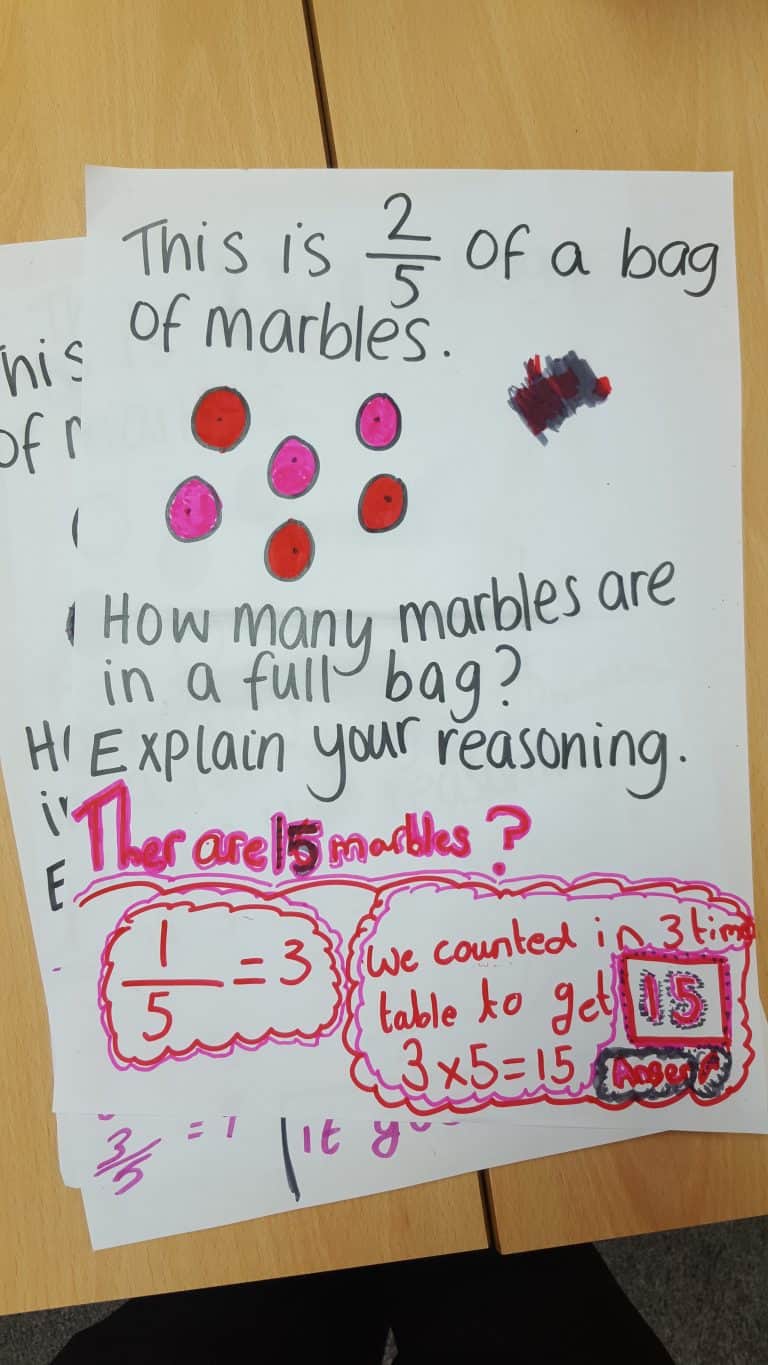 This is 2/5 of a bag
of marbles.
How many marbles are
in a full bag?
Explain your reasoning.
Ther are 15 marbles?
1/5 = 3
We counted in 3 time
table to get 15
3x5=15 Anser
his
of
H
E
3/5 = 1 it